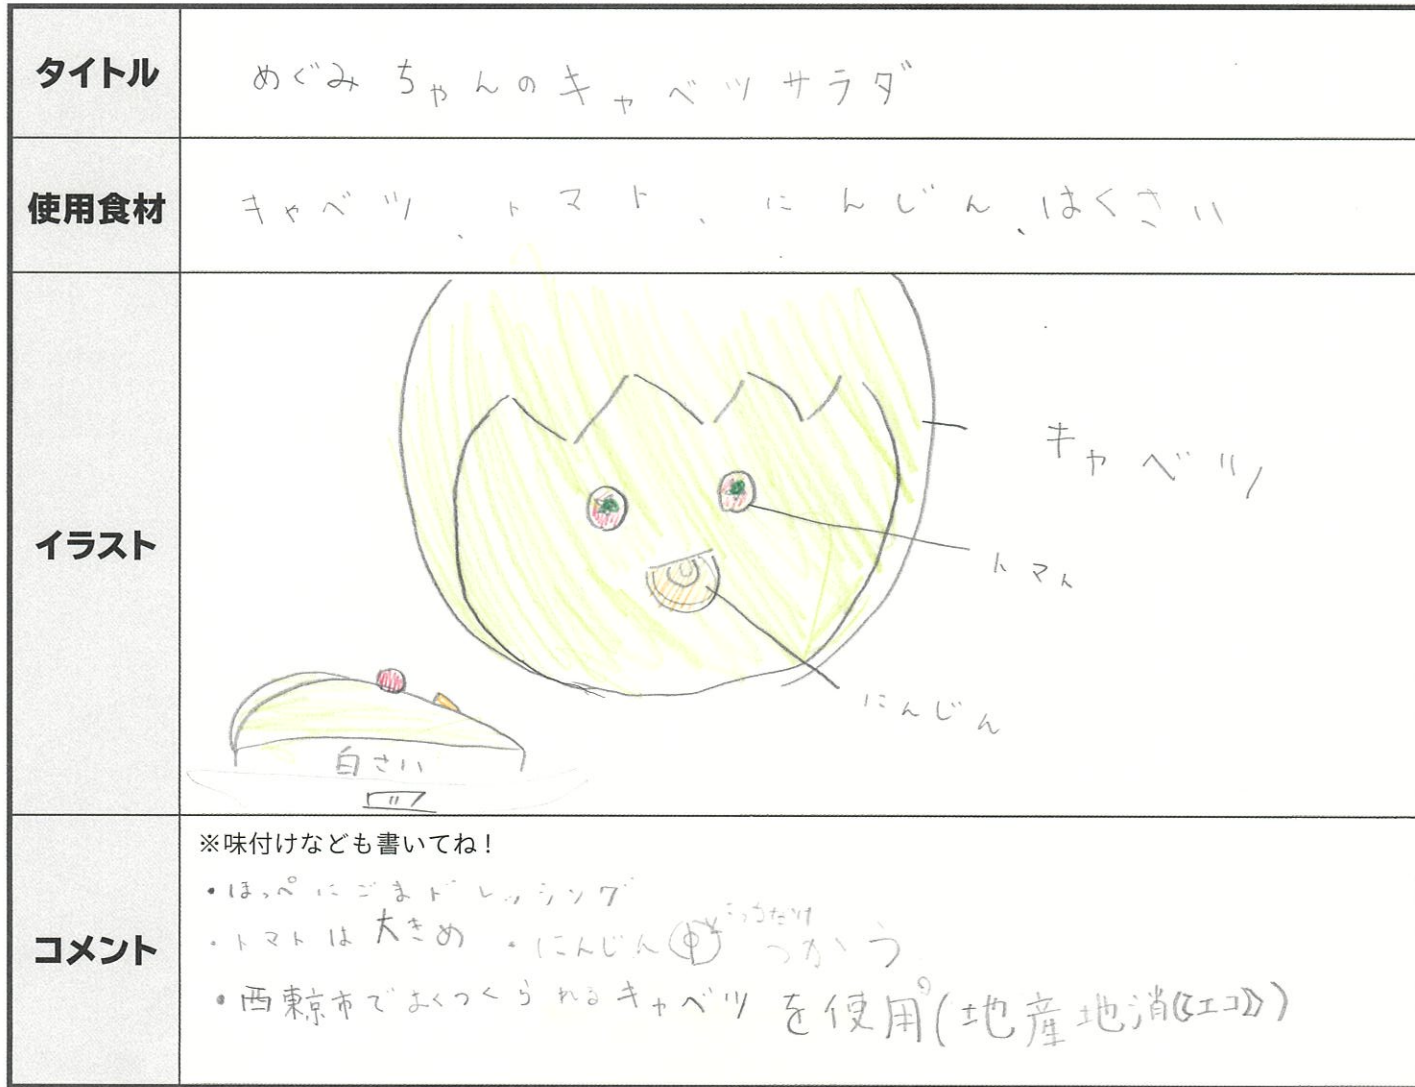 タイトル
めぐみちゃんのキャベツサラダ
使用食材
キャベツ、トマト、にんじん、はくさい
イラスト
キャベツ
トマト
にんじん
白さい
コメント
※味付けなども書いてね!
・ほっぺにごまドレッシング
・トマトは大きめ ・にんじん こっちだけ つかう
・西東京市でよくつくられるキャベツを使用(地産地消《エコ》)